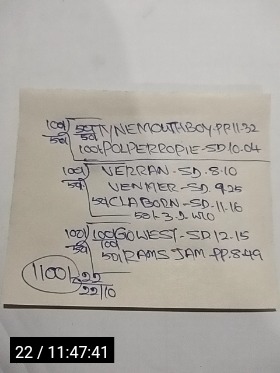 100/ 50/ TYNEMOUTH BOY-PP 11.32
50/ 50/
100/ POLPERRO PIE-SD 10-04
100/ VERRAN-SD-8.10
50/ VENMER-SD.9.25
50/ CLABORN-SD-11-16
50/-3.2.W/O
100/ 100/ GO WEST-SD 12.15
50/ 100/
50/ RAMS JAM-PP.8.49
1100/
22/10
22 / 11:47:41